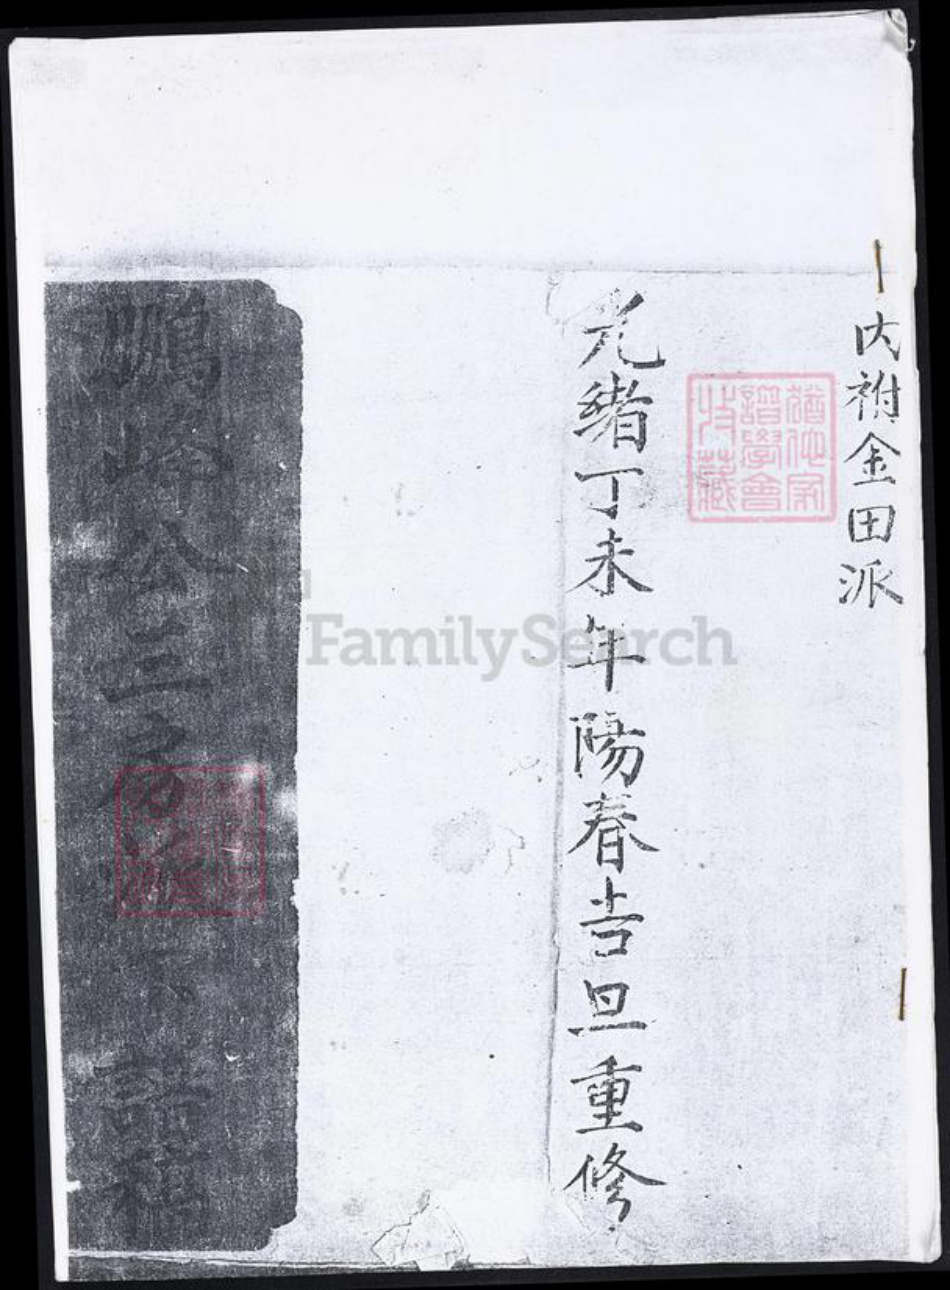 内祔金田派
猶他家
譜學會
收藏
光緒丁未年陽春吉旦重修
鵬峰公三房派
譜稿
FamilySearch